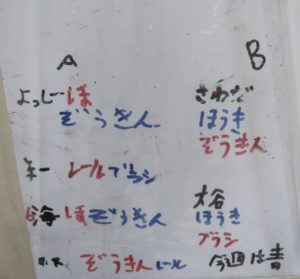 A
よっしー ほ
ぞうきん
朱一 レールブラシ
晦 ほ ぞうきん
ぞうきん レール
B
さわだ
ほうき
ぞうきん
大谷
ほうき
ブラシ
今週は青